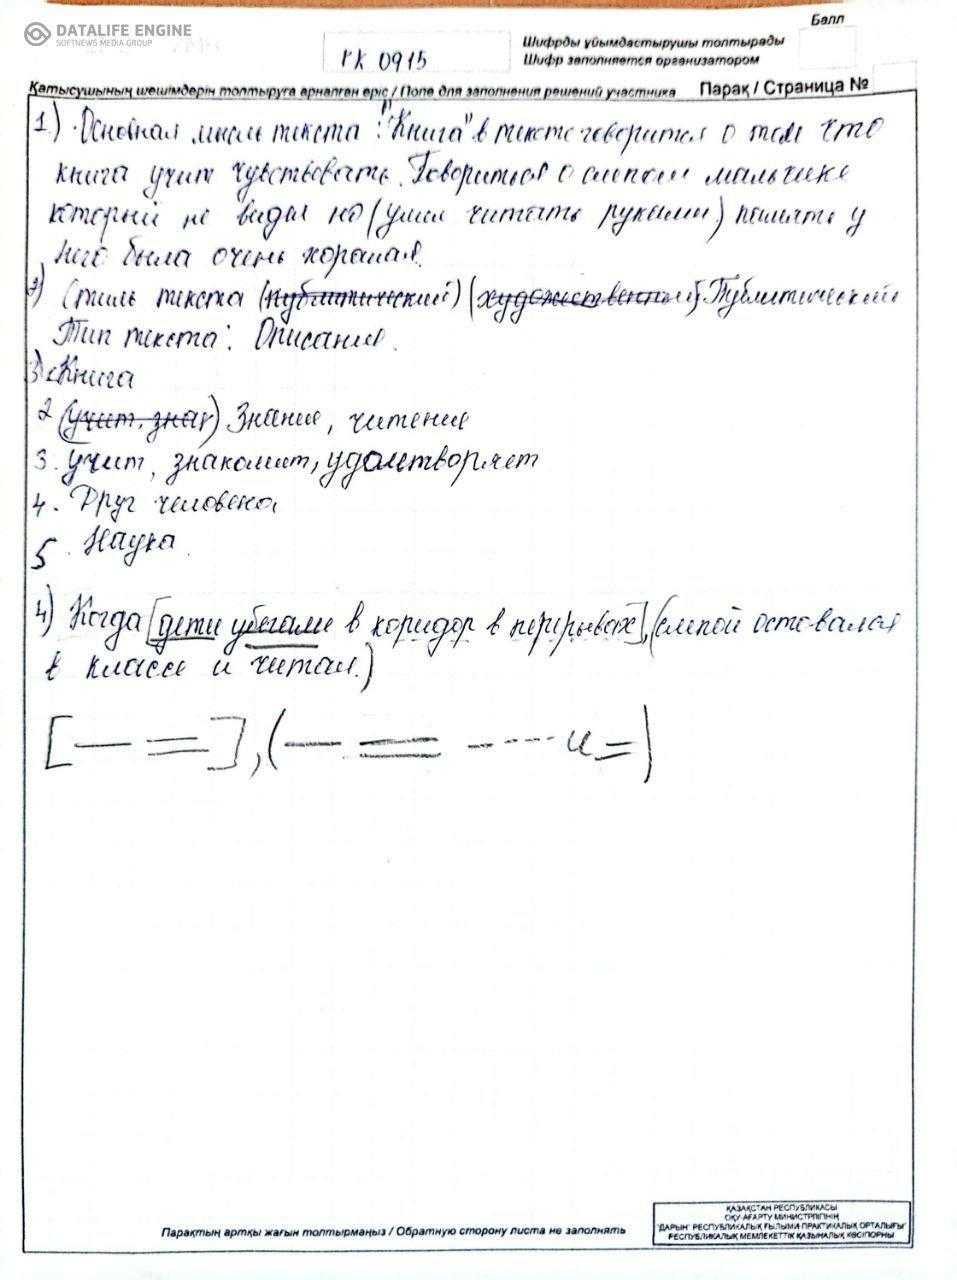 DATALIFE ENGINE
SOFTNEWS MEDIA GROUP
Балл
РК 0915
Шифрды ұйымдастырушы толтырады
Шифр заполняется организатором
Қатысушының шешімдерін толтыруға арналған өріс / Поле для заполнения решений участника
Парақ / Страница №
1) Основная мысль текста: "Книга" в тексте говорится о том что
книга учит чувствовать. Говориться о слепом мальчике
который не видел но (умел читать руками) память у
него была очень хорошая.
2) Стиль текста (публитический) (художественный) Публитический
Тип текста: Описание.
3) Книга
2 (учит, зная) Знание, читение
3. учит, знакомит, удолетворяет
4. Друг человека
5. Наука
4) Когда [дети убегали в коридор в перерывах], (слепой оставался
в классе и читал.)
[— =], (— = -·-·- и =)
Парақтың артқы жағын толтырмаңыз / Обратную сторону листа не заполнять
ҚАЗАҚСТАН РЕСПУБЛИКАСЫ
ОҚУ-АҒАРТУ МИНИСТРЛІГІНІҢ
"ДАРЫН" РЕСПУБЛИКАЛЫҚ ҒЫЛЫМИ-ПРАКТИКАЛЫҚ ОРТАЛЫҒЫ"
РЕСПУБЛИКАЛЫҚ МЕМЛЕКЕТТІК ҚАЗЫНАЛЫҚ КӘСІПОРНЫ